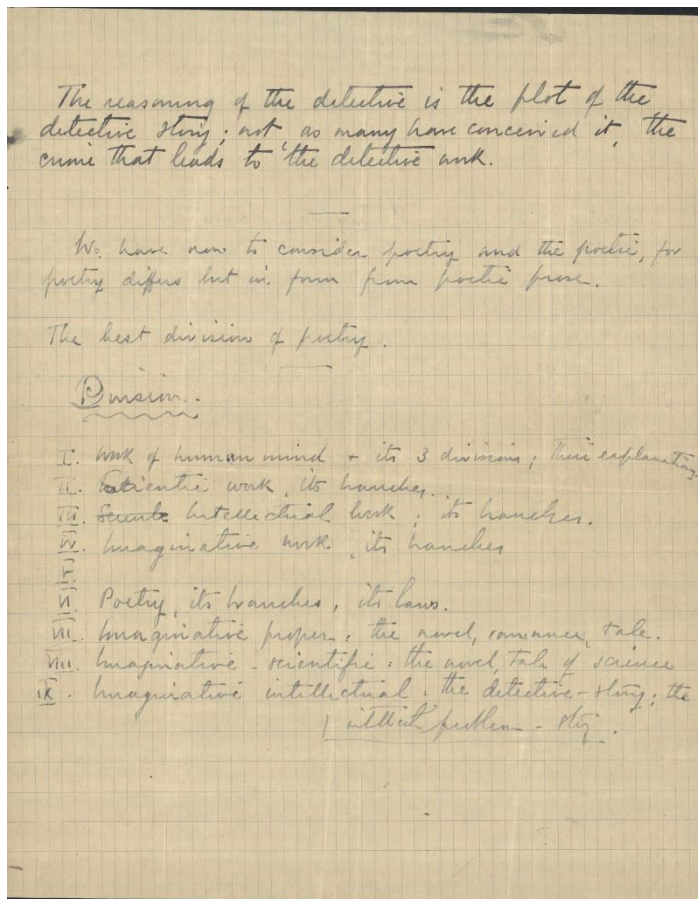 The reasoning of the detective is the plot of the
detective story; not, as many have conceived it, the
crime that leads to the detective work.
We have now to consider poetry and the poetic, for
poetry differs but in form from poetic prose.
The best division of poetry.
Division.
I. Work of human mind + its 3 divisions; their explanation.
II. Scientific work, its branches.
III. Intellectual work; its branches.
IV. Imaginative work, its branches
V.
VI. Poetry, its branches, its laws.
VII. Imaginative proper: the novel, romance, tale.
VIII. Imaginative-scientific: the novel, tale of science
IX. Imaginative intellectual: the detective-story; the
problem-story.